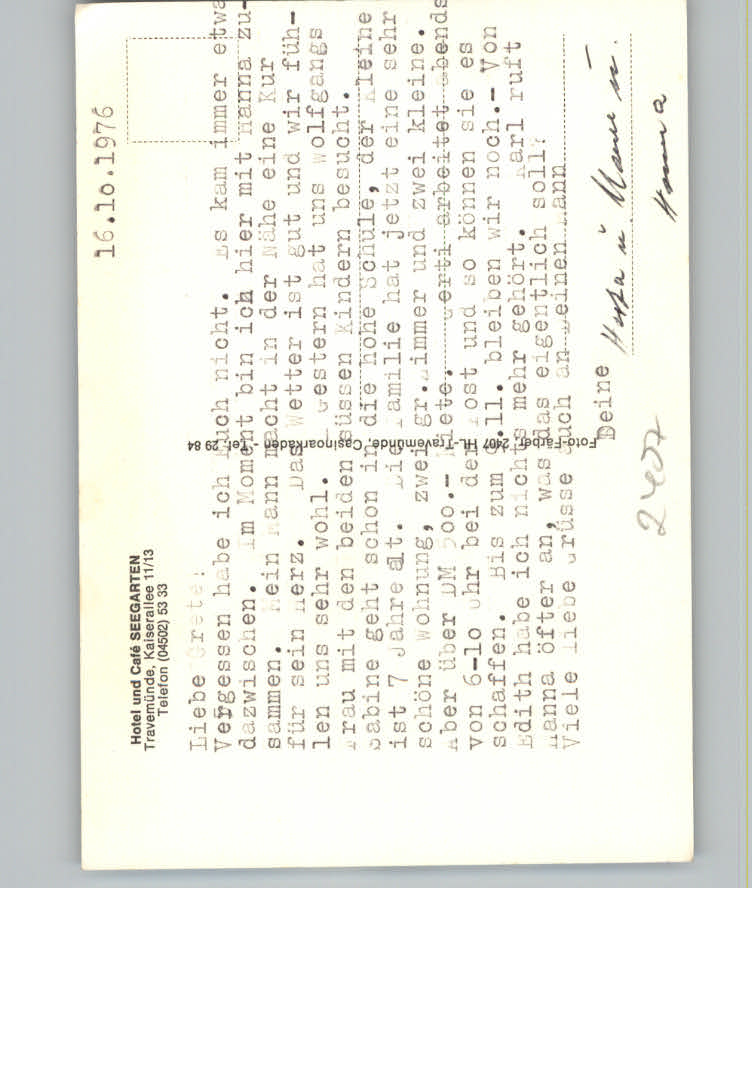 16.10.1976
Hotel und Café SEEGARTEN
Travemünde, Kaiserallee 11/13
Telefon (04502) 53 33
Liebe Grete!
Vergessen habe ich Euch nicht. Es kam immer etwa
dazwischen. Im Moment bin ich hier mit Hanna zu-
sammen. Mein Mann macht in der Nähe eine Kur
für sein Herz. Das Wetter ist gut und wir füh-
len uns sehr wohl. Gestern hat uns Wolfgangs
Frau mit den beiden süssen Kindern besucht.
Sabine geht schon in die hohe Schule, der Kleine
ist 7 Jahre alt. Die Familie hat jetzt eine sehr
schöne Wohnung, zwei gr.Zimmer und zwei kleine.
Aber über DM 500.- Miete. Gerti arbeitet abends
von 6-10 Uhr bei der Post und so können sie es
schaffen. Bis zum 6.11. bleiben wir noch.- Von
Edith habe ich nichts mehr gehört. Karl ruft
Hanna öfter an, was das eigentlich soll?
Viele liebe Grüsse auch an Deinen Mann
Deine
Herta u.
Hanna
2407
Foto-Färber, 2407 HL-Travemünde, Casinoarkaden - Tel. 29 84